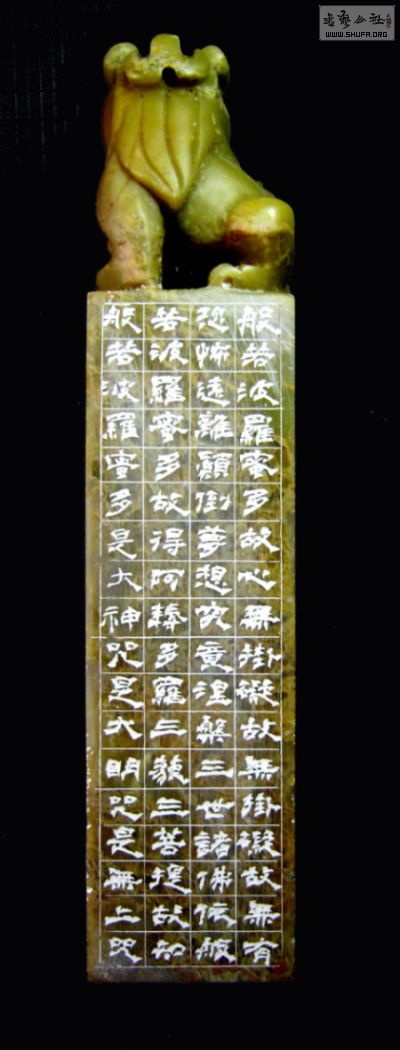 般若波羅蜜多故心無掛礙故無掛礙故無有
恐怖遠離顛倒夢想究竟涅槃三世諸佛依般
若波羅蜜多故得阿耨多羅三藐三菩提故知
般若波羅蜜多是大神咒是大明咒是無上咒
書藝公社
WWW.SHUFA.ORG